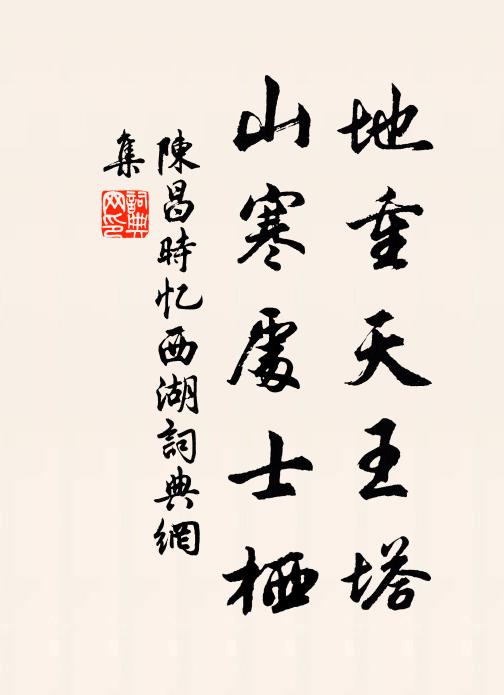 地重天王塔
山寒處士栖
陳昌時忆西湖詞典網
集
詞典
网印